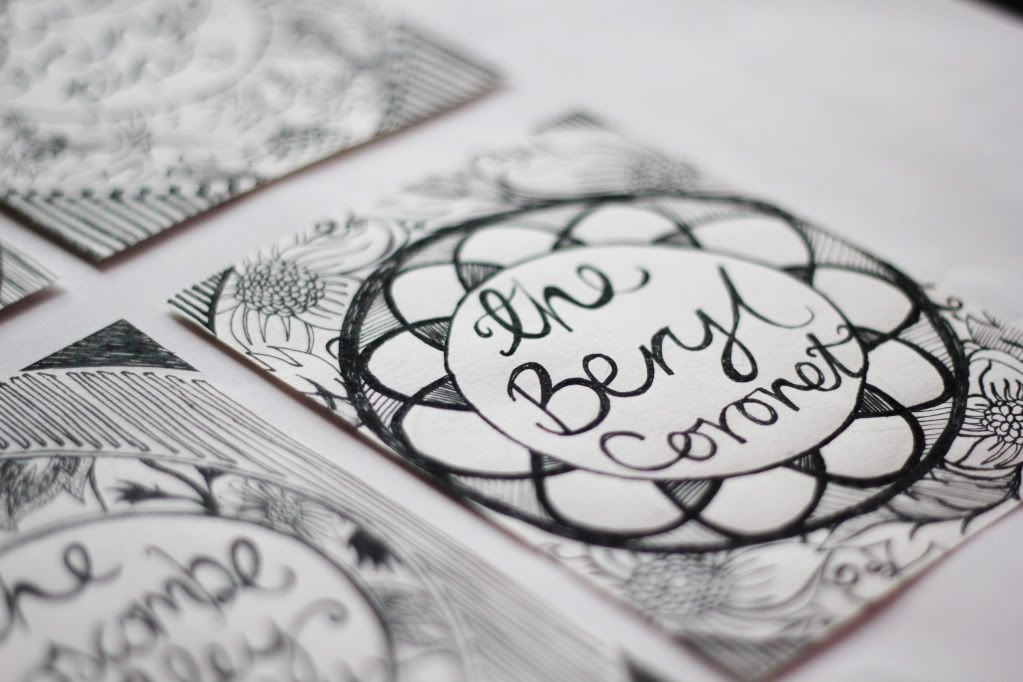 the
Beryl
Coronet
he
scombe
lley